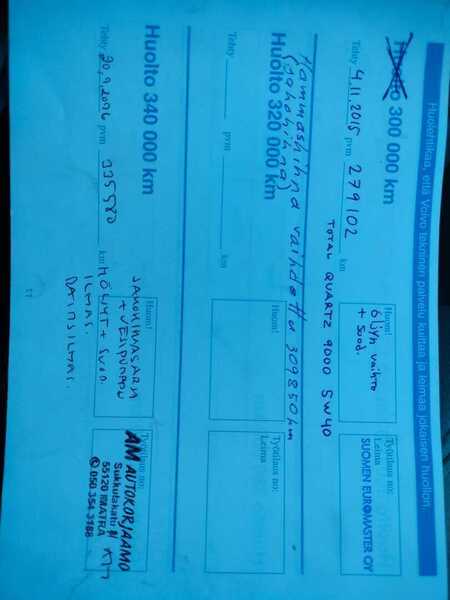 Huolehtikaa, että Volvo tekninen palvelu kuittaa ja leimaa jokaisen huollon.
Huolto 300 000 km
Tehty 4.11.2015 pvm 279102 km
Huom!
Öljyn vaihto
+ suod.
Työtilaus no:
Leima
SUOMEN EUROMASTER OY
TOTAL QUARTZ 9000 5W40
Hammashihna vaihdettu 309850 km
(jakohihna)
Huolto 320 000 km
Tehty pvm km
Huom!
Työtilaus no:
Leima
Huolto 340 000 km
Tehty 20.9.2016 pvm 335580 km
Huom!
JAKOHIHNASARJA
+ VESIPUMPPU
ÖLJYT + SUOD.
ILMAS.
RAITISILMAS.
Työtilaus no:
AM AUTOKORJAAMO
Sukkulakatu
55120 IMATRA
050 354 3188